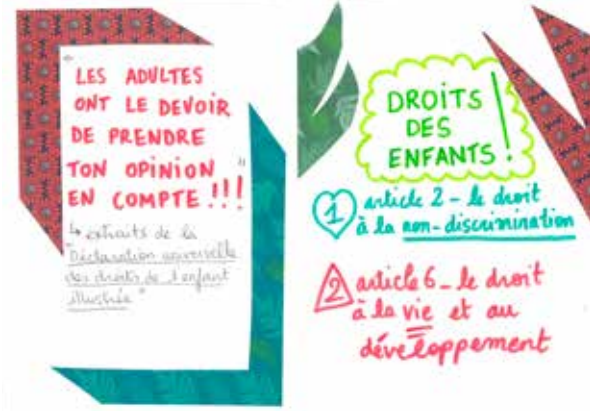 "LES ADULTES
ONT LE DEVOIR
DE PRENDRE
TON OPINION
EN COMPTE !!!"
↳ extraits de la
"Déclaration universelle
des droits de l'enfant
illustrée"
DROITS
DES
ENFANTS !
1 article 2 - le droit
à la non-discrimination
2 article 6 - le droit
à la vie et au
développement